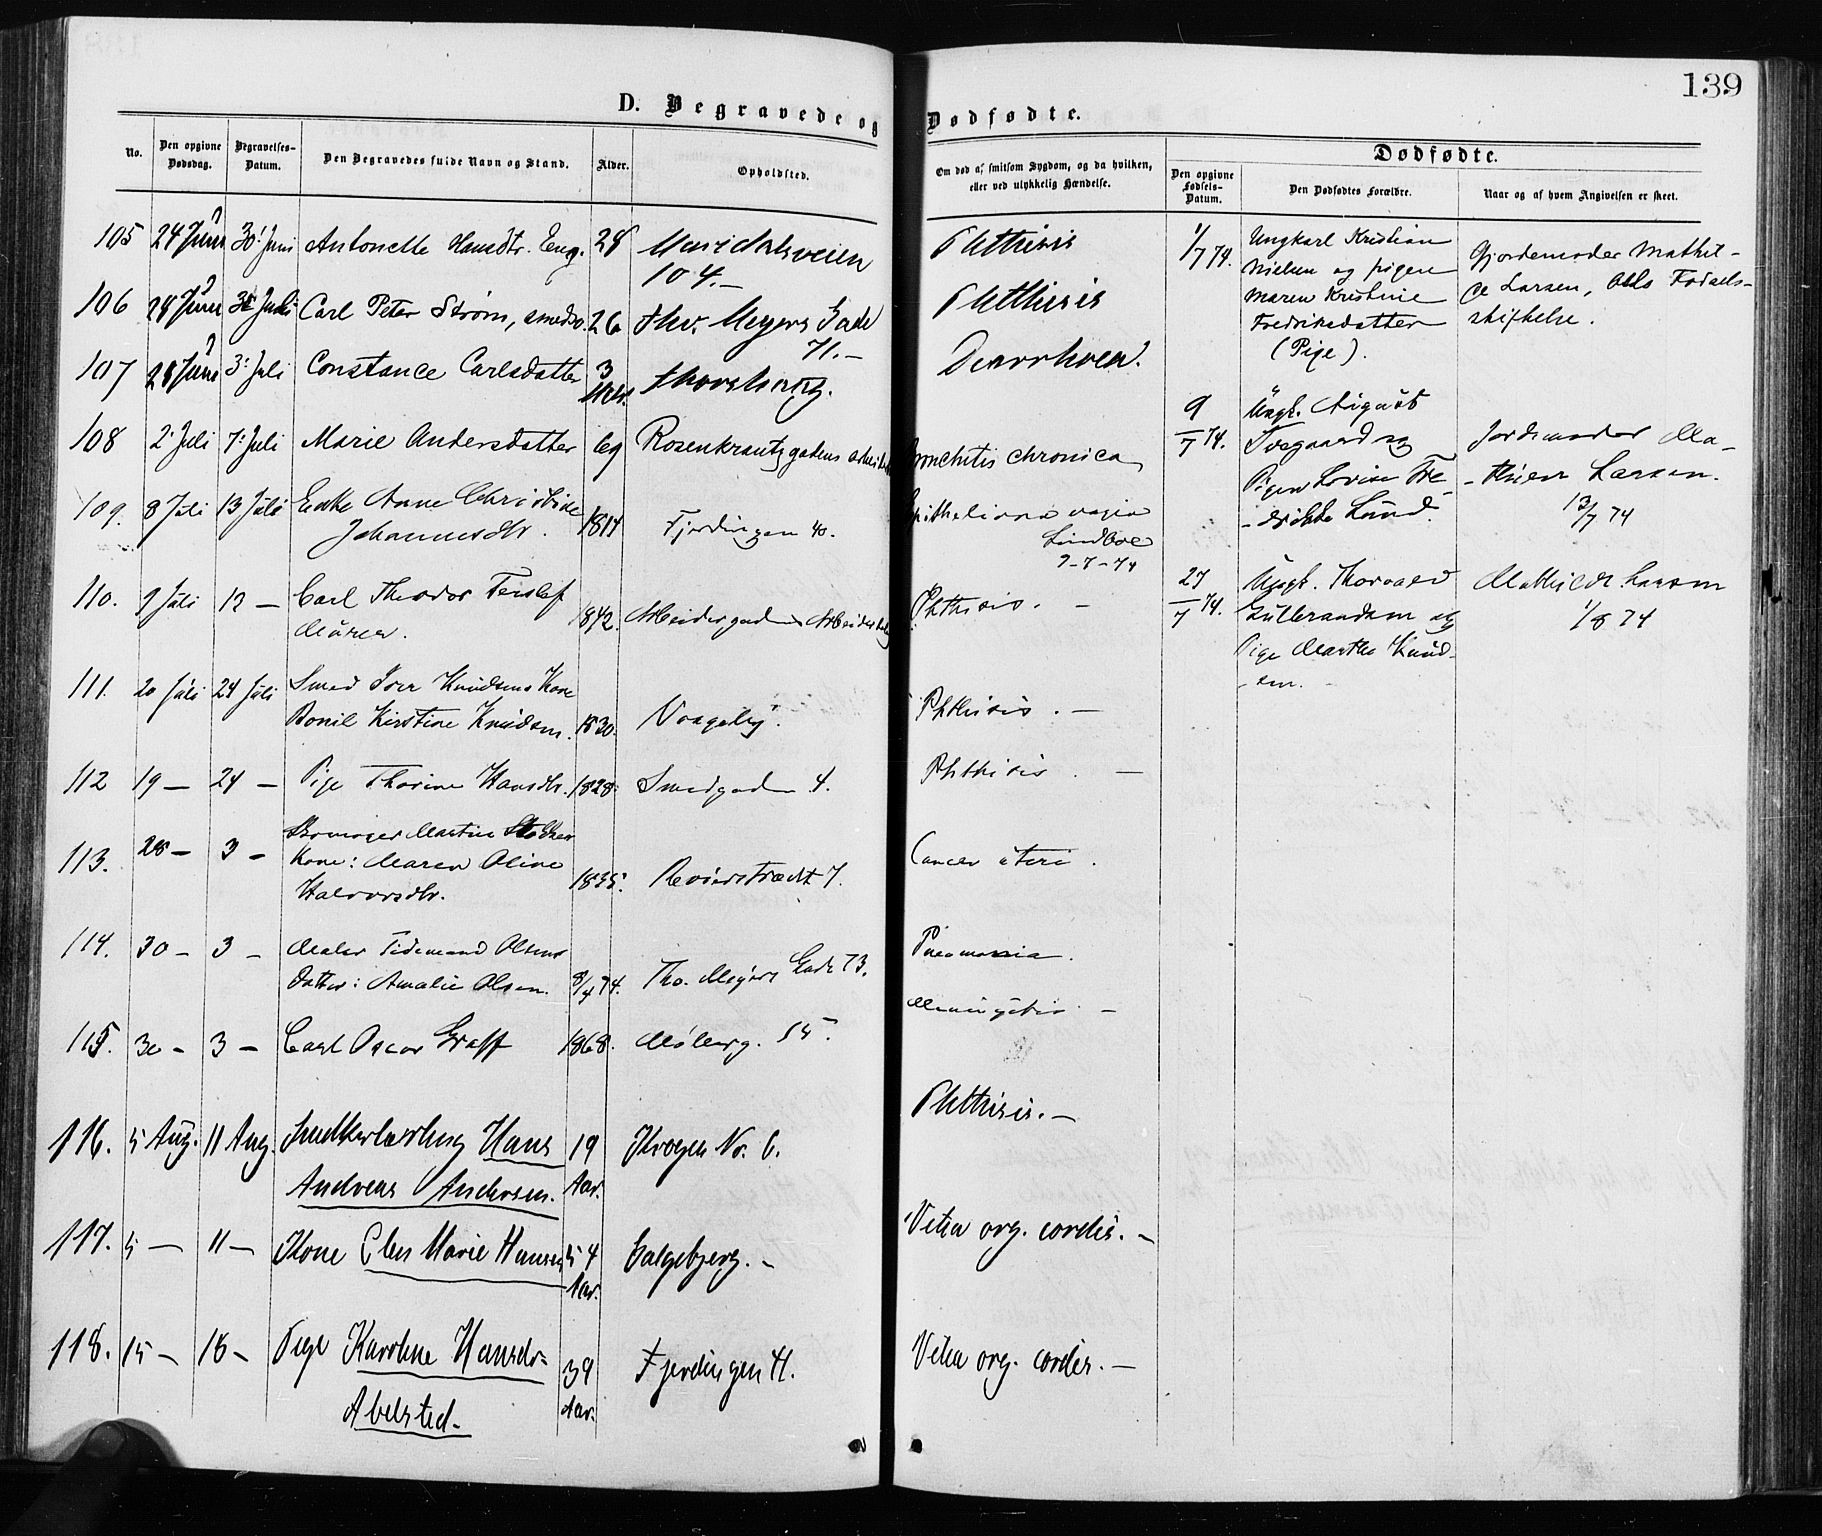 139
D. Begravede og Dødfødte.
No.
Den opgivne Dødsdag.
Begravelses-Datum.
Den Begravedes fulde Navn og Stand.
Alder.
Opholdsted.
Om død af smitsom Sygdom, og da hvilken,
eller ved ulykkelig Hændelse.
Dødfødte.
Den opgivne Fødsels-Datum.
Den Dødfødtes Forældre.
Naar og af hvem Angivelsen er skeet.
105 24 Juni 30' Juni Antonette Hansdtr. Eng. 28 Maridalsveien
104.-
Phthisis
106 28 Juni Juli Carl Peter Strøm, smedsv. 26 Thv. Meyers Gade
71.-
Phthisis
107 28 Juni 3' Juli Constance Carlsdatter 3
Mdr.
108 2' Juli 7' Juli Marie Andersdatter 69 Rosenkrantzgadens
Bronchitis chronica
109. 8 Juli 13 Juli Enke Anne Christine
Johannesdtr. Fjerdingen 40.
Lindboe
9-7-74
110. 9 Juli 12 - Carl Theodor
1842.
Phthisis. -
111. 20 Juli 24 Juli Smed Iver Knudsens Kone
Bonil Kirstine Knudsen. 1830. Vaageby.
Phthisis. -
112 19 - 24 - Pige Thorine Hansdtr. 1828. Smedgaden 4.
Phthisis. -
113. 28 - 3 - Skomager Martin
Kone: Maren Oline
Halvorsdtr. 1835. 7.
Cancer uteri.
114. 30 - 3 - Maler Tidemand Olsens
Datter: Amalie Olsen. 8/4 74. Tho. Meyers Gade 73.
Pneumonia.
115. 30 - 3 - Carl Oscar Graff 1868. Møllerg. 55.
Meningitis. -
116. 5 Aug. 11 Aug. Snedkerlærling Hans
Andreas Andersen. 19
Aar. Krogen No. 6.
Phthisis. -
117. 5 - 11 - Kone Elen Marie Hansen 54
Aar. Galgebjerg. -
Vitia org. cordis. -
118. 15 - 18 - Pige Karoline Hansdr.
Abelsted. 39
Aar. Fjerdingen H.
Vitia org. cordis. -
1/7 74.
Ungkarl Kristian
Nielsen og pigen
Maren Kristine
Fredriksdatter
(Pige).
Gjordemoder Mathil-
de Larsen, Oslo Fødsels-
stiftelse.
9/7 74.
Ungk. August
Tvegaard og
Pigen Lovise Fre-
-drikke Lund.
Jordemoder Ma-
Larsen.
13/7 74
27/7 74.
Ungk. Thorvald
Gulbrandsen og
Pige Marthe Knud-
-sen.
Mathilde Larsen
1/8 74